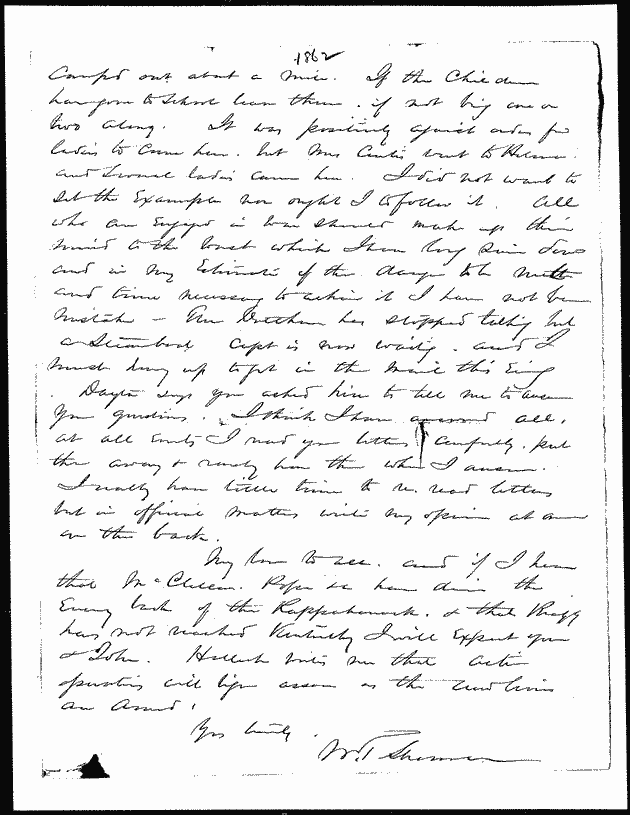 1862
Camp'd out about a mile. If the Children
have gone to School leave them. if not bring one or
two along. It was positively against orders for
ladies to come here. but Mrs went to Helena.
and Several ladies came here. I did not want to
set the Example nor ought I to follow it. All
who are Engaged in War should make up their
mind to the worst which I have long since done
and in my Estimate of the danger to be met
and time necessary to achieve it I have not been
mistaken - has stopped talking but
a Steamboat Capt is now waiting. and I
must hurry up to get in the mail this Evng
. Dayton says you asked him to tell me to answer
your questions. I think I have answered all.
at all Events I read your letters carefully. put
them away & rarely have them when I answer.
I really have little time to re. read letters
but in official matters write my opinion at once
on the back.
My love to all. and if I hear
that McClellan. Pope &c have driven the
Enemy back of the Rappahannock. & that Bragg
has not reached Kentucky I will Expect you
& John. Halleck writes me that active
operations will begin as soon as the new levies
are armed.
Yrs truly.
W.T. Sherman